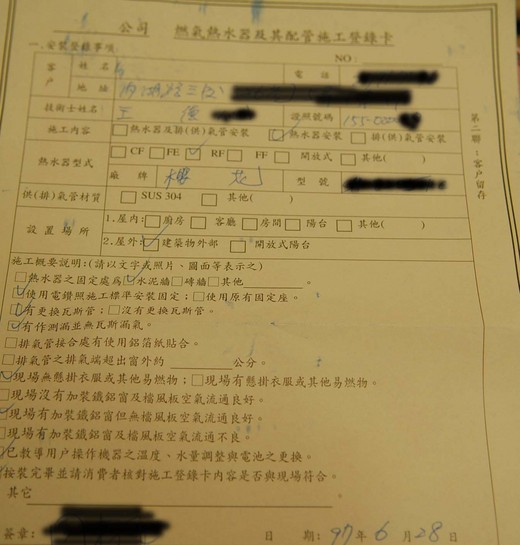 公司 燃氣熱水器及其配管施工登錄卡
一.安裝登錄事項 NO:
客戶 姓名 電話
地址 內湖 三段
技術士姓名: 王 證照號碼 155-
施工內容 □熱水器及排(供)氣管安裝 □熱水器安裝 □排(供)氣管安裝
熱水器型式 □CF □FE □RF □FF □開放式 □其他( )
廠牌 櫻花 型號
供(排)氣管材質 □SUS 304 □其他( )
設置場所 1.屋內:□廚房 □客廳 □房間 □陽台 □其他( )
2.屋外:□建築物外部 □開放式陽台
第二聯:客戶留存
施工概要說明:(請以文字或照片、圖面等表示之)
□熱水器之固定處為□水泥牆□磚牆□其他
□使用電鑽照施工標準安裝固定;□使用原有固定座。
□有更換瓦斯管;□沒有更換瓦斯管。
□有作測漏並無瓦斯漏氣。
□排氣管接合處有使用鋁箔紙貼合。
□排氣管之排氣端超出窗外約 公分。
□現場無懸掛衣服或其他易燃物;□現場有懸掛衣服或其他易燃物。
□現場沒有加裝鐵鋁窗及檔風板空氣流通良好。
□現場有加裝鐵鋁窗但無檔風板空氣流通良好。
□現場有加裝鐵鋁窗及檔風板空氣流通不良。
已教導用戶操作機器之溫度、水量調整與電池之更換。
按裝完畢並請消費者核對施工登錄卡內容是否與現場符合。
其它
簽章: 日期:97年6月28日